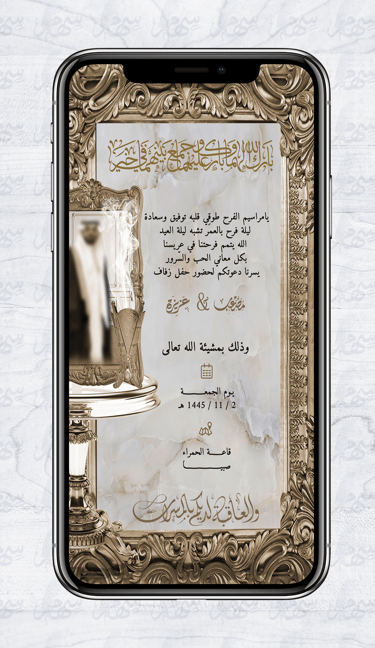 بارك الله لهما وبارك عليهما وجمع بينهما في خير
يامراسيم الفرح طوفي قلبه توفيق وسعادة
ليلة فرح بالعمر تشبه ليلة العيد
الله يتمم فرحتنا في عريسنا
بكل معاني الحب والسرور
يسرنا دعوتكم لحضور حفل زفاف
مصعب & عزيزة
وذلك بمشيئة الله تعالى
يـوم الجمعـــــة
2 / 11 / 1445 هـ
قاعــــة الحمراء
صبيـــــــا
والعاقبة لديكم بالمسرات